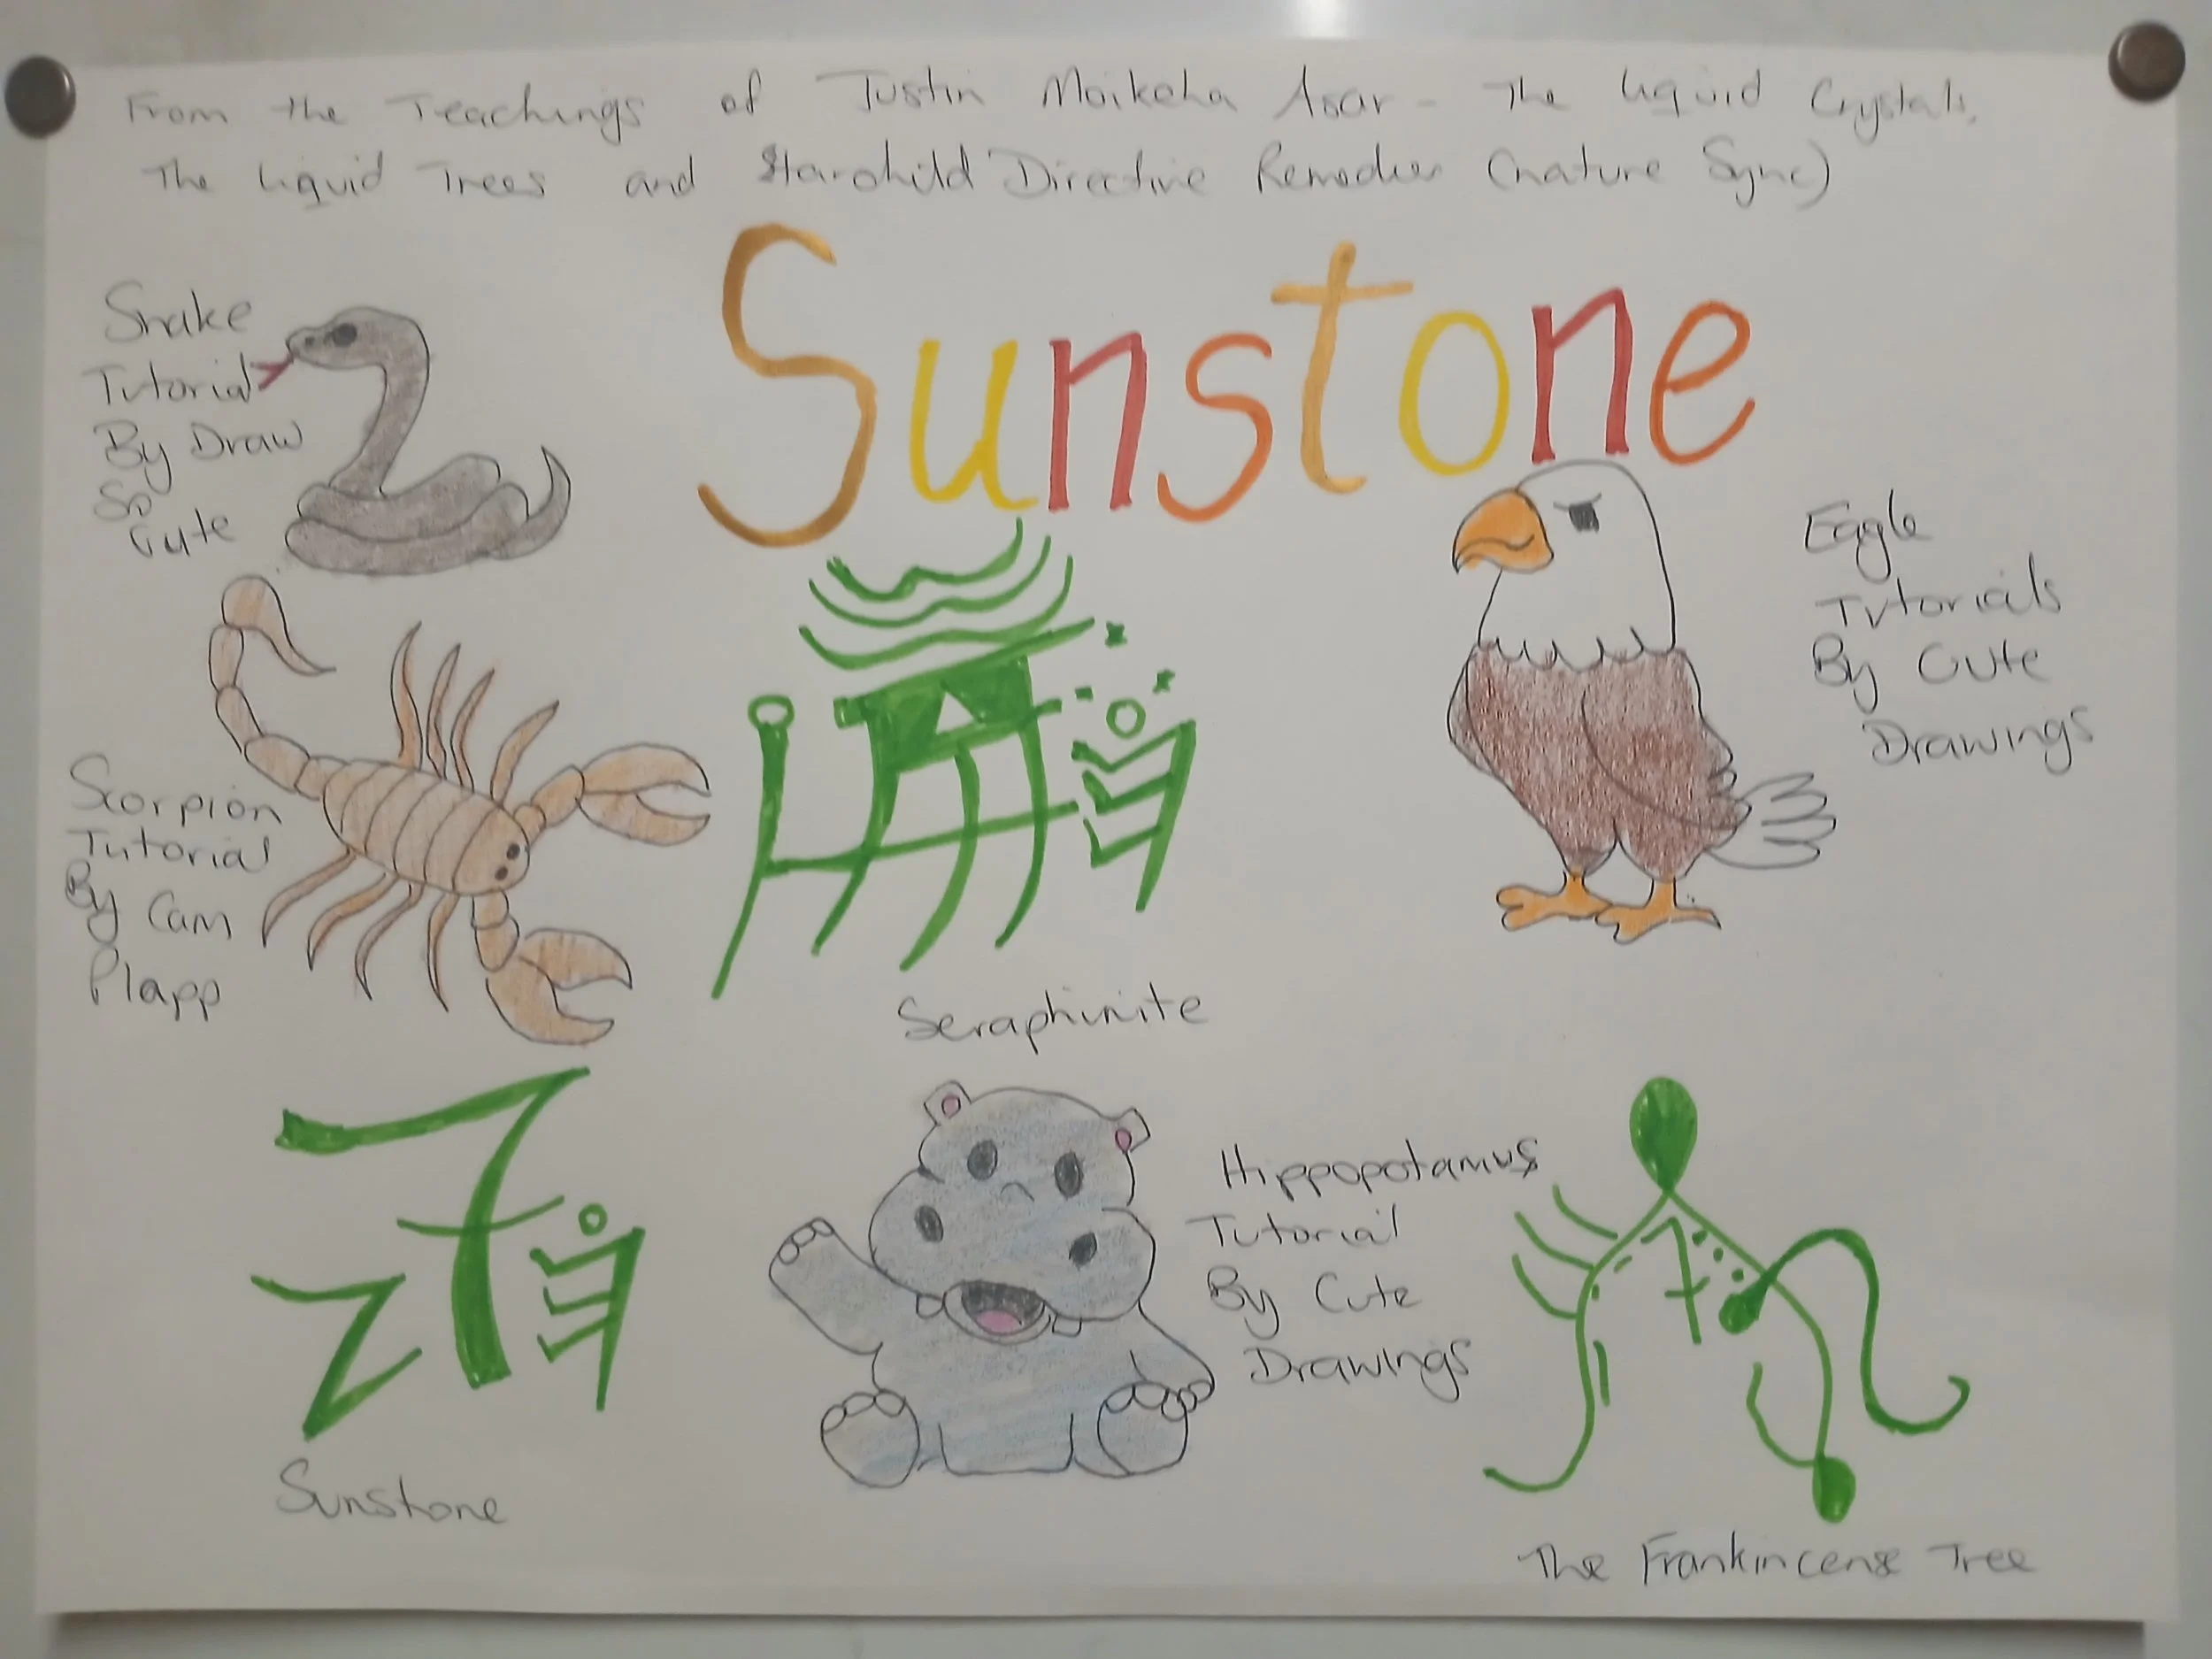 From the Teachings of Justin Moikeha Asar - The Liquid Crystals,
The Liquid Trees and Starchild Directive Remedies (Nature Sync)
Sunstone
Snake
Tutorial
By Draw
So
Cute
Eagle
Tutorials
By Cute
Drawings
Scorpion
Tutorial
By Cam
Plapp
Seraphinite
Hippopotamus
Tutorial
By Cute
Drawings
Sunstone
The Frankincense Tree